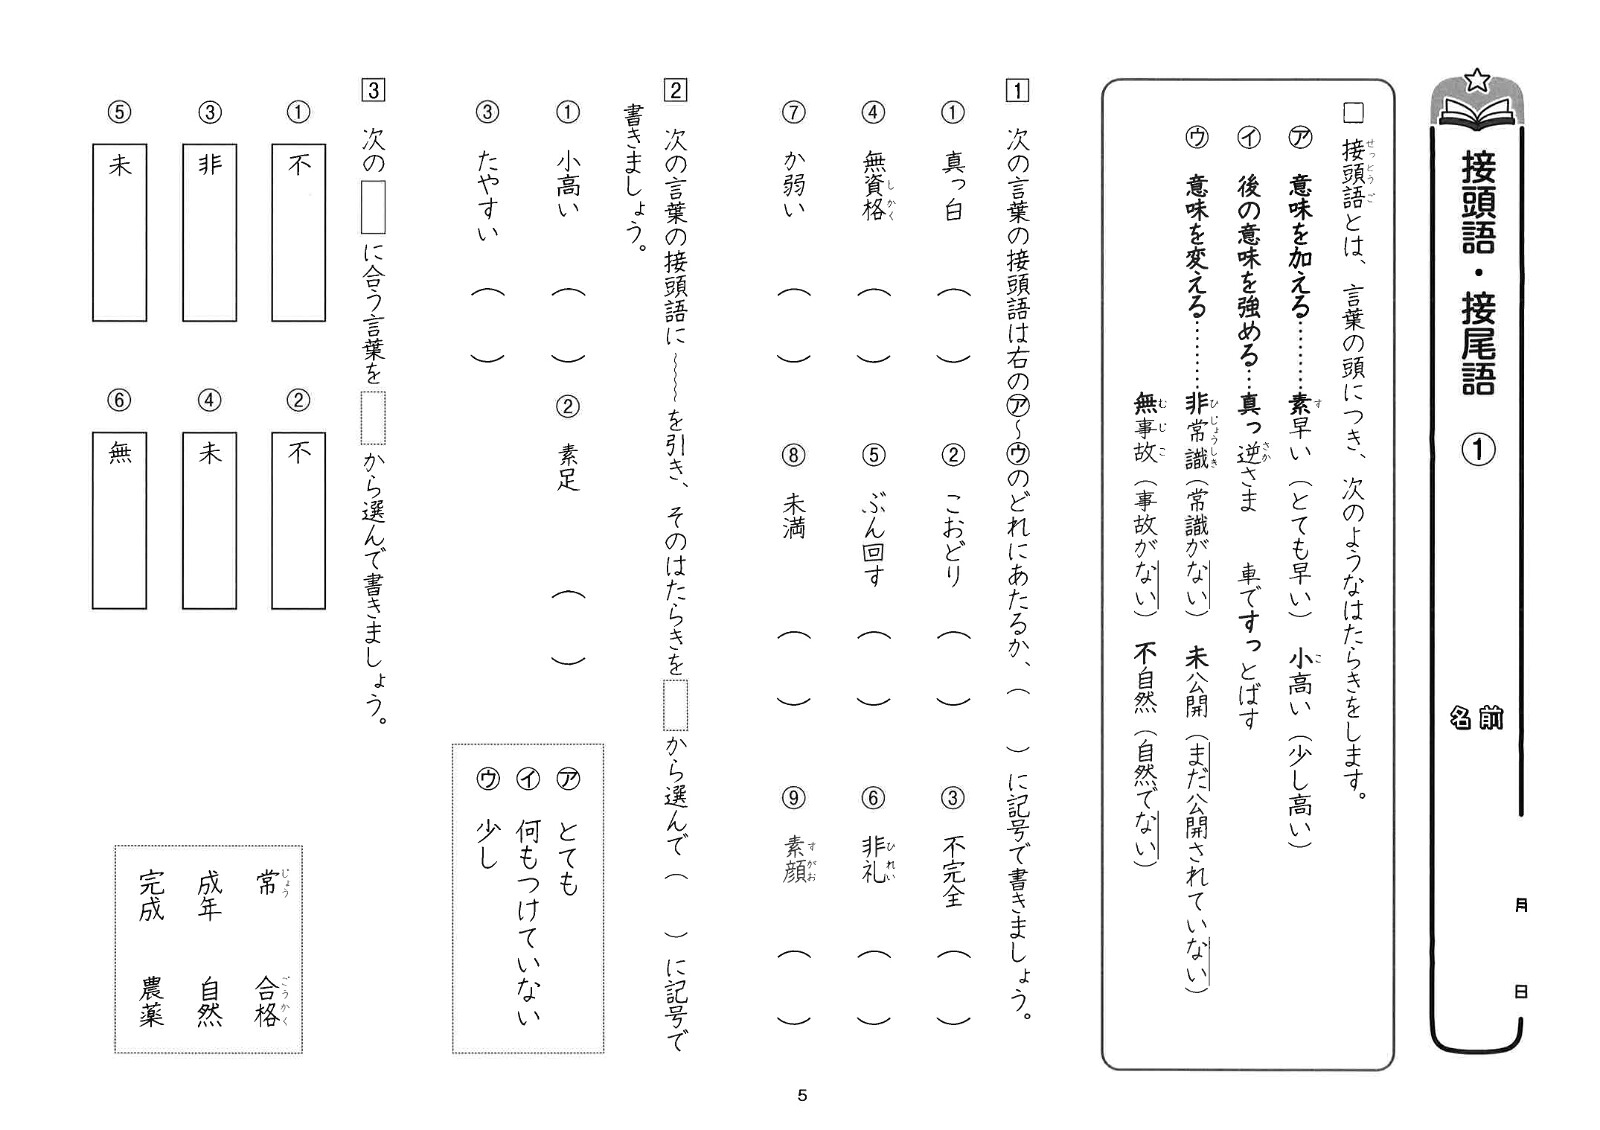 接頭語・接尾語 ①
名前
月 日
□ 接頭語とは、言葉の頭につき、次のようなはたらきをします。
せっとうご
㋐ 意味を加える………素早い（とても早い） 小高い（少し高い）
す こ
㋑ 後の意味を強める…真っ逆さま 車ですっとばす
さか
㋒ 意味を変える………非常識（常識がない） 未公開（まだ公開されていない）
ひ じょうしき
無事故（事故がない） 不自然（自然でない）
むじこ
1 次の言葉の接頭語は右の㋐～㋒のどれにあたるか、（ ）に記号で書きましょう。
① 真っ白 （ ） ② こおどり （ ） ③ 不完全 （ ）
④ 無資格 （ ） ⑤ ぶん回す （ ） ⑥ 非礼 （ ）
しかく ひれい
⑦ か弱い （ ） ⑧ 未満 （ ） ⑨ 素顔 （ ）
すがお
2 次の言葉の接頭語に〜〜〜を引き、そのはたらきを□から選んで（ ）に記号で
書きましょう。
① 小高い （ ） ② 素足 （ ）
③ たやすい （ ）
㋐ とても
㋑ 何もつけていない
㋒ 少し
3 次の□に合う言葉を□から選んで書きましょう。
① 不 ② 不
③ 非 ④ 未
⑤ 未 ⑥ 無
常 合格
じょう ごうかく
成年 自然
完成 農薬
5